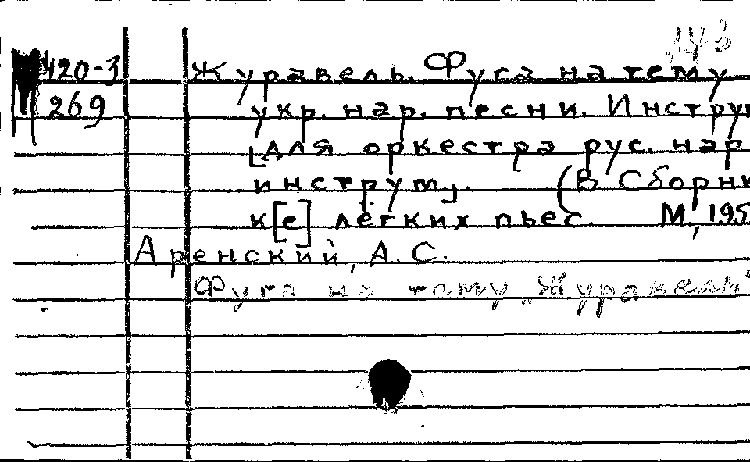 420-3 Журавель. Фуга на тему
269 укр. нар. песни. Инстру
[для оркестра рус. нар
инструм]. (В Сборни
к[е] легких пьес М, 195
Аренский, А. С.
Фуга на тему „Журавель"